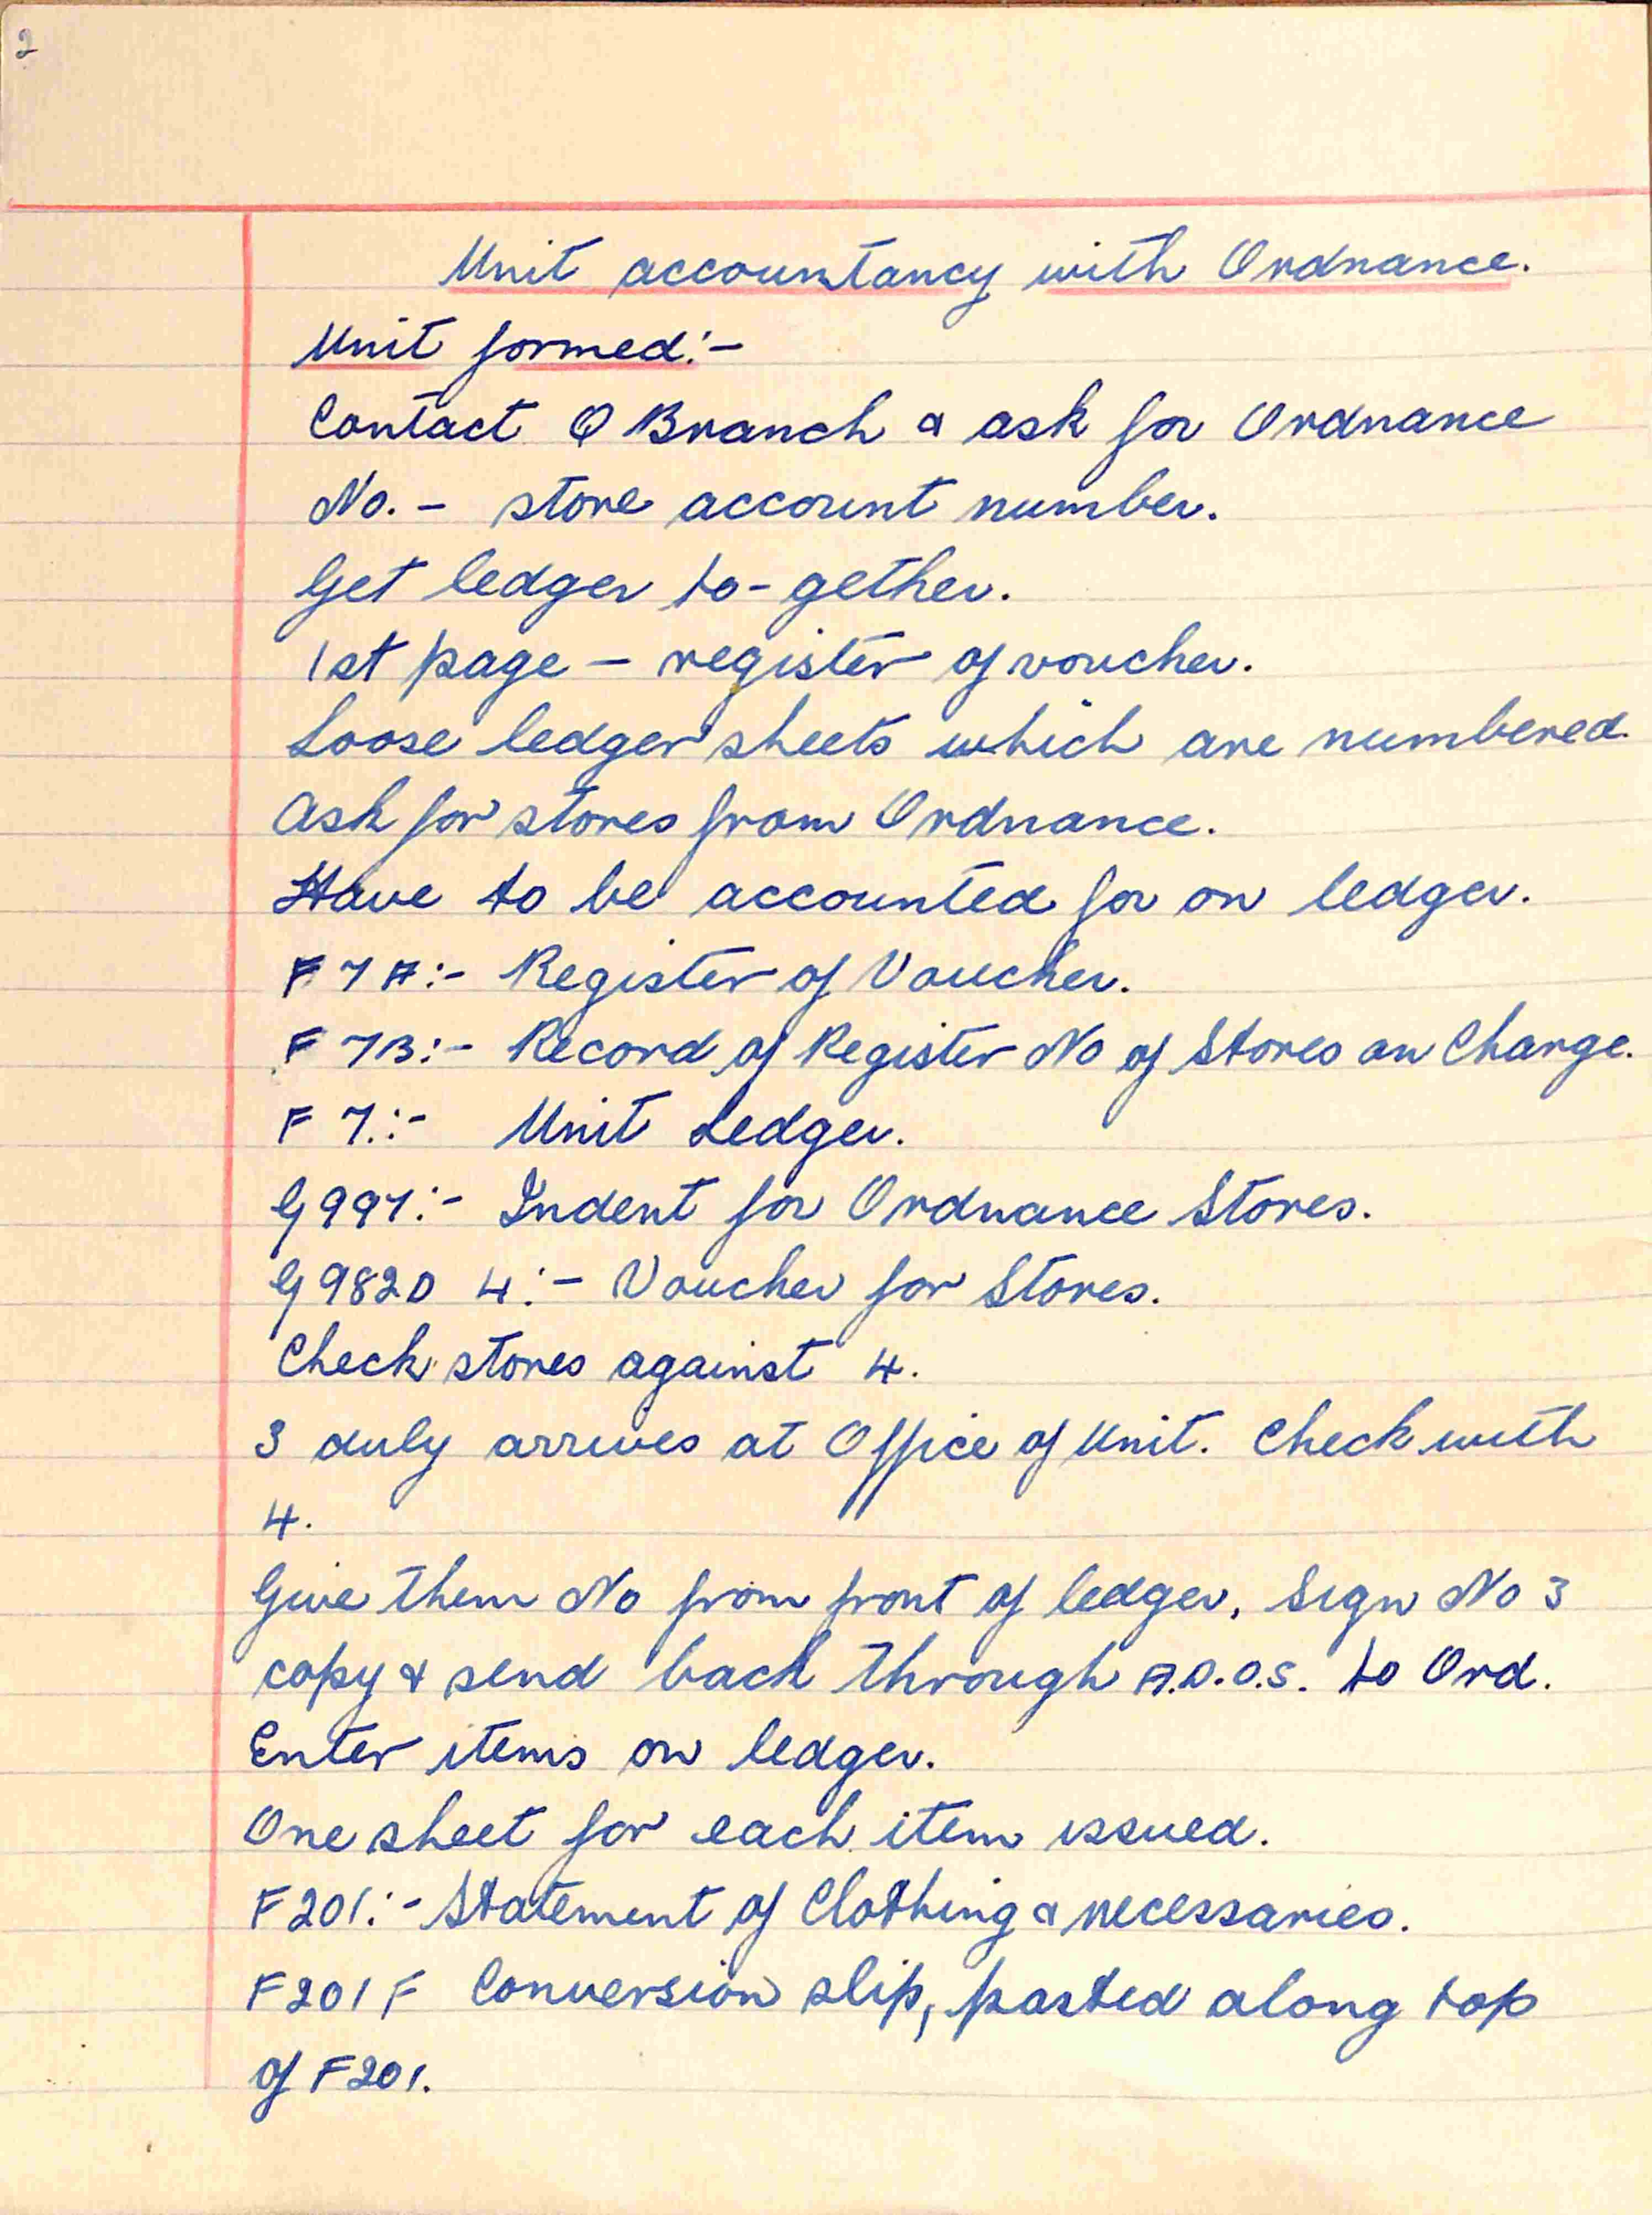 2
Unit accountancy with Ordnance.
Unit formed:-
Contact Q Branch & ask for Ordnance
No. - store account number.
Get ledger to-gether.
1st page - register of voucher.
Loose ledger sheets which are numbered.
Ask for stores from Ordnance.
Have to be accounted for on ledger.
F 7A:- Register of Voucher.
F 7B:- Record of Register No of Stores on Charge.
F 7.:- Unit Ledger.
G997:- Indent for Ordnance Stores.
G982D 4:- Voucher for Stores.
Check stores against 4.
3 duly arrives at Office of Unit. Check with
4.
Give them No from front of ledger, Sign No 3
copy & send back through A.D.O.S. to Ord.
Enter items on ledger.
One sheet for each item issued.
F201:- Statement of Clothing & necessaries.
F201F Conversion slip, pasted along top
of F201.